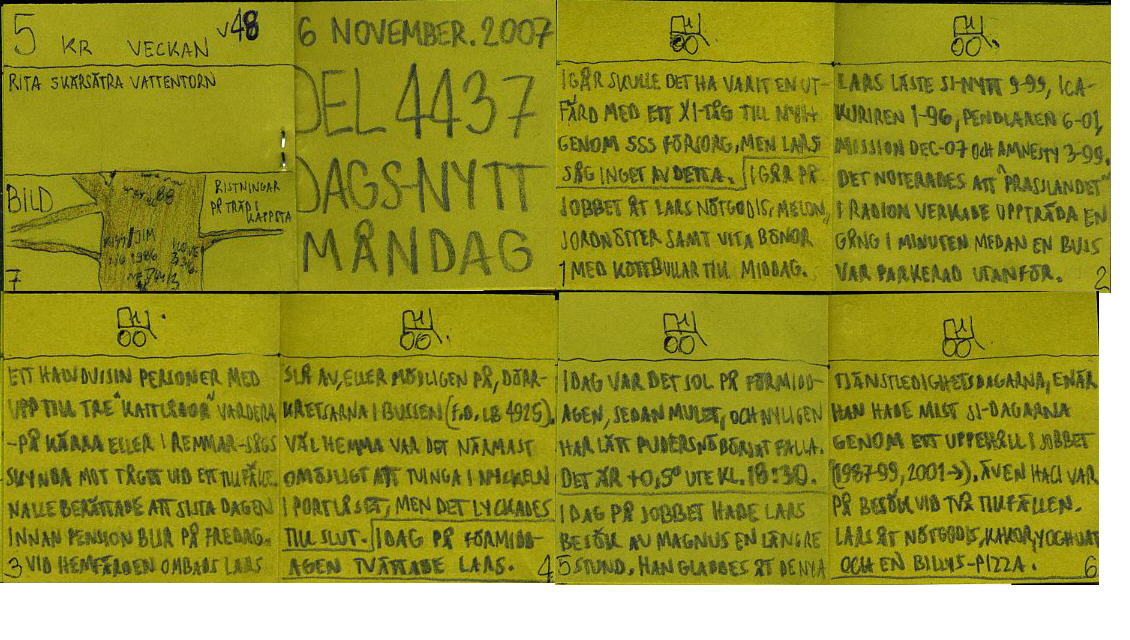 5 KR VECKAN v48
RITA SKÄRSÄTRA VATTENTORN
BILD
RISTNINGAR
PÅ TRÄD I
KAPPSTA
7
6 NOVEMBER. 2007
DEL 4437
DAGS-NYTT
MÅNDAG
IGÅR SKULLE DET HA VARIT EN UT-
FÄRD MED ETT X1-TÅG TILL NYH.
GENOM SSS FÖRSORG, MEN LARS
SÅG INGET AV DETTA. IGÅR PÅ
JOBBET ÅT LARS NÖTGODIS, MELON,
JORDNÖTTER SAMT VITA BÖNOR
1 MED KÖTTBULLAR TILL MIDDAG.
LARS LÄSTE SI-NYTT 9-99, ICA-
KURIREN 1-96, PENDLAREN 6-01,
MISSION DEC-07 OCH AMNESTY 3-99.
DET NOTERADES ATT "PRASSLANDET"
I RADION VERKADE UPPTRÄDA EN
GÅNG I MINUTEN MEDAN EN BUSS
VAR PARKERAD UTANFÖR. 2
ETT HALVDUSSIN PERSONER MED
UPP TILL TRE "KATTLÅDOR" VARDERA
-PÅ KÄRRA ELLER I REMMAR-SÅGS
SKYNDA MOT TÅGET VID ETT TILLFÄLLE.
NALLE BERÄTTADE ATT SISTA DAGEN
INNAN PENSION BLIR PÅ FREDAG.
3 VID HEMFÄRDEN OMBADS LARS
SLÅ AV, ELLER MÖJLIGEN PÅ, DÖRR-
KRETSARNA I BUSSEN (f.d. LB 4925).
VÄL HEMMA VAR DET NÄRMAST
OMÖJLIGT ATT TVINGA I NYCKELN
I PORTLÅSET, MEN DET LYCKADES
TILL SLUT. IDAG PÅ FÖRMIDD-
AGEN TVÄTTADE LARS. 4
IDAG VAR DET SOL PÅ FÖRMIDD-
AGEN, SEDAN MULET, OCH NYLIGEN
HAR LÄTT PUDERSNÖ BÖRJAT FALLA.
DET ÄR +0,5° UTE KL. 18:30.
IDAG PÅ JOBBET HADE LARS
BESÖK AV MAGNUS EN LÄNGRE
5 STUND. HAN GLADDES ÅT DE NYA
TJÄNSTLEDIGHETSDAGARNA, ENÄR
HAN HADE MIST SJ-DAGARNA
GENOM ETT UPPEHÅLL I JOBBET
(1987-99, 2001→). ÄVEN HACI VAR
PÅ BESÖK VID TVÅ TILLFÄLLEN.
LARS ÅT NÖTGODIS, KAKOR, YOGHURT
OCH EN BILLYS-PIZZA. 6